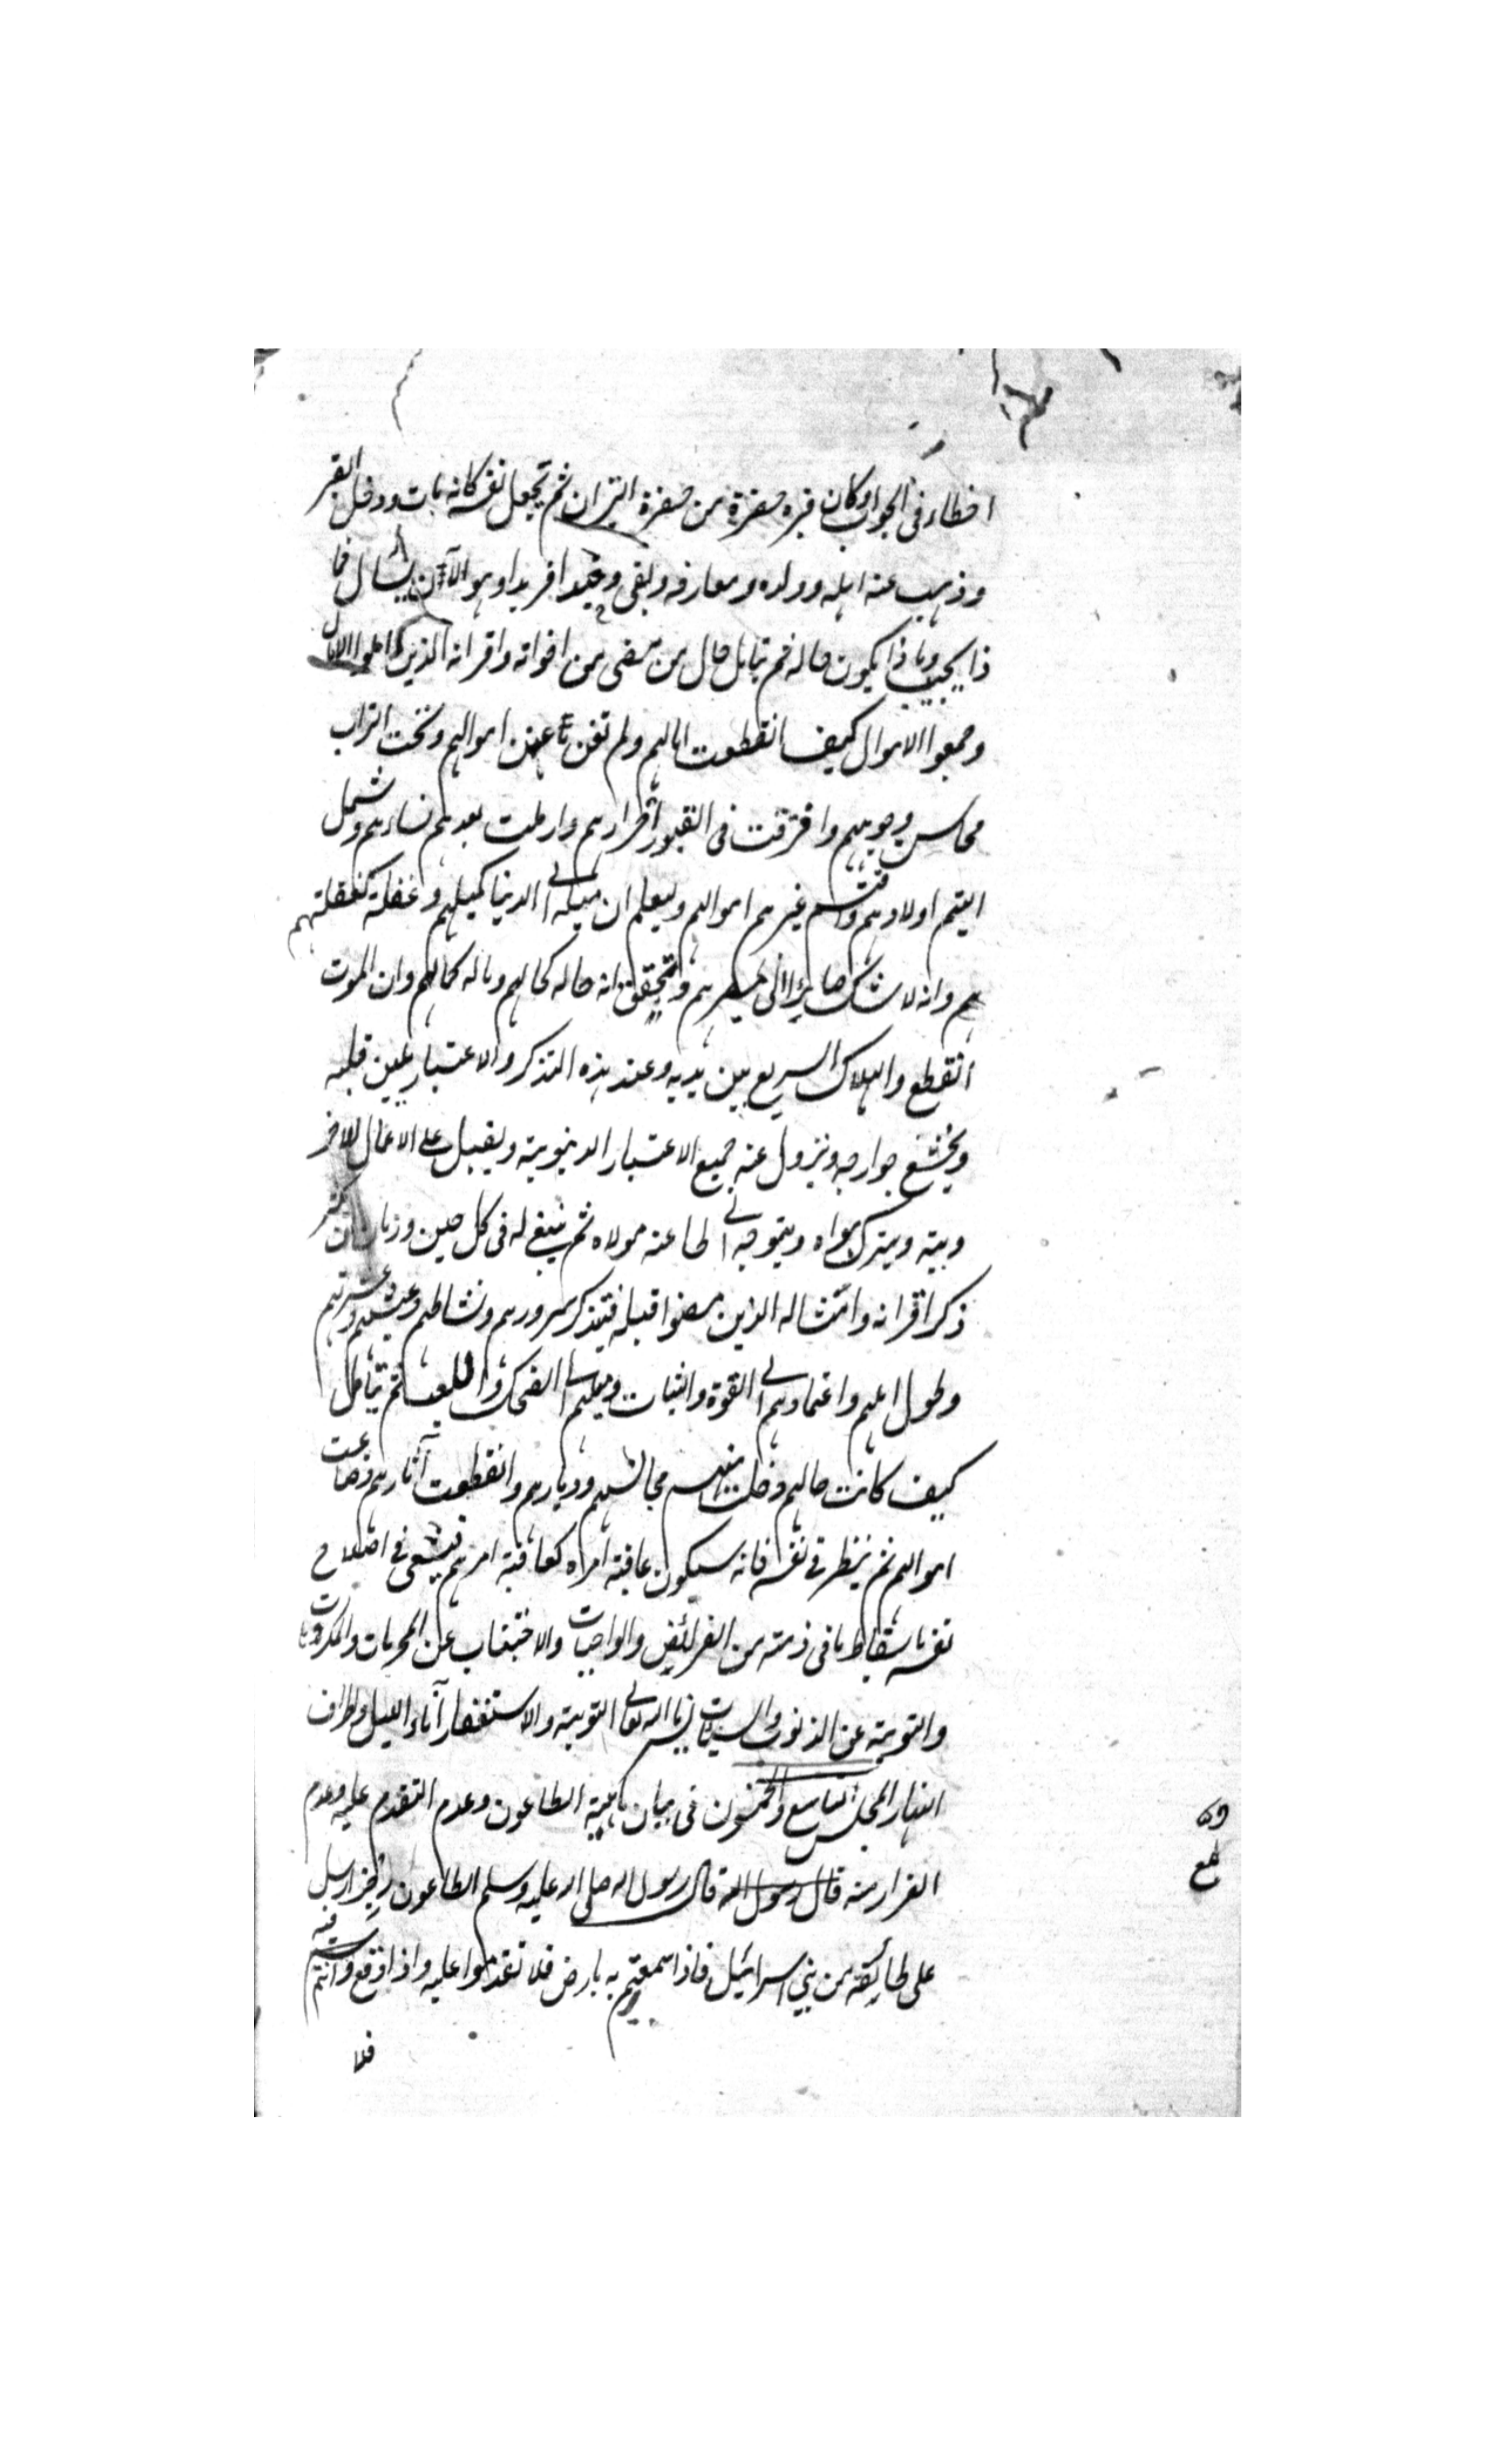 اخطاء فى الجواب او كان قبره حفرة من حفرة النيران ثم يجعل نفسه كانه مات ودخل القبر
وذهب عنه اهله وولده ومعارفه وبقى وحيدا فريدا وهو الآن يسأل فما
ذا يجيب وماذا يكون حاله ثم تأمل حال من مضى من اخوانه واقرانه الذين املوا الامال
وجمعوا الاموال كيف انقطعت امالهم ولم تغن عنهم اموالهم وتحت التراب
محاسن وجوههم وافترقت فى القبور اجزاؤهم وارملت بعدهم نساءهم وشمل
اليتم اولادهم وقسم غيرهم اموالهم وليعلم ان ميله الى الدنيا كميلهم وغفلته كغفلتهم
هم وانه لا شك صائر الى مصيرهم وليتحقق انه حاله كحالهم وماله كمالهم وان الموت
القطع والهلاك السريع بين يديه وعند هذه التذكر والاعتبار يلين قلبه
ويخشع جوارحه ويزول عنه جميع الاعتبار الدنيوية ويقبل على الاعمال الاخر
وية ويترك هواه ويتوجه الى طاعة مولاه ثم ينبغى له فى كل حين وزمان ان يكثر
ذكر اقرانه وامثاله الذين مضوا قبله فيتذكر سرورهم ونشاطهم وعيشهم وعشرتهم
وطول املهم واعتمادهم الى القوة والثبات وميلهم الى الضحك واللعب ثم يتأمل
كيف كانت حالهم وخلت منهم مجالسهم وديارهم وانقطعت آثارهم وضاعت
اموالهم ثم ينظر فى نفسه فانه سيكون عاقبة امراه كعاقبة امرهم فيسعى فى اصلاح
نفسه باسقاط ما فى ذمته من الفرائض والواجبات والاجتناب عن المحرمات والمكروهات
والتوبة عن الذنوب والسيئات يسرنا الله تعالى التوبة والاستغفار آناء الليل واطراف
النهار المجلس التاسع والخمسون فى بيان ماهية الطاعون وعدم التقدم عليه وعدم
الفرار منه قال رسول الله قال رسول الله صلى الله عليه وسلم الطاعون رجز ارسل
على طائفة من بنى اسرائيل فاذا سمعتم به بارض فلا تقدموا عليه واذا وقع وانتم فيه
فلا